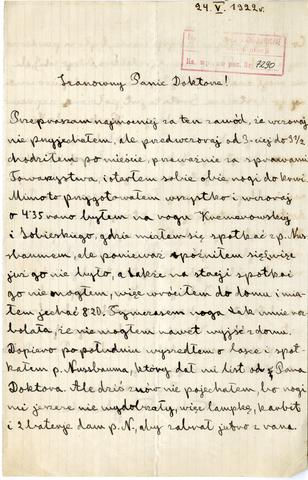 24. V. 1922 r.
7290
Szanowny Panie Doktorze!
Przepraszam najmocniej za ten zawód, że wczoraj
nie przyjechałem, ale przedwczoraj od 3-ciej do 9½
chodziłem po mieście, przeważnie za sprawami
Towarzystwa, i starłem sobie obie nogi do krwi.
Mimoto przygotowałem wszystko i wczoraj
o 4.35 rano byłem na rogu
i Sobieskiego, gdzie miałem się spotkać z p. Nus-
baumem, ale ponieważ spóźniłem się, więc
już go nie było, a także na stacji spotkać
go nie mogłem, więc wróciłem do domu i mia-
łem jechać 8.20. Tymczasem noga tak mnie roz-
bolała, że nie mogłem nawet wyjść z domu.
Dopiero po południu wyszedłem o lasce i spot-
kałem p. Nusbauma, który dał mi list od Pana
Doktora. Ale dziś znów nie pojechałem, bo nogi
mi jeszcze nie wydobrzały, więc lampkę, karbit
i 2 baterje dam p. N., aby zabrał jutro z rana.